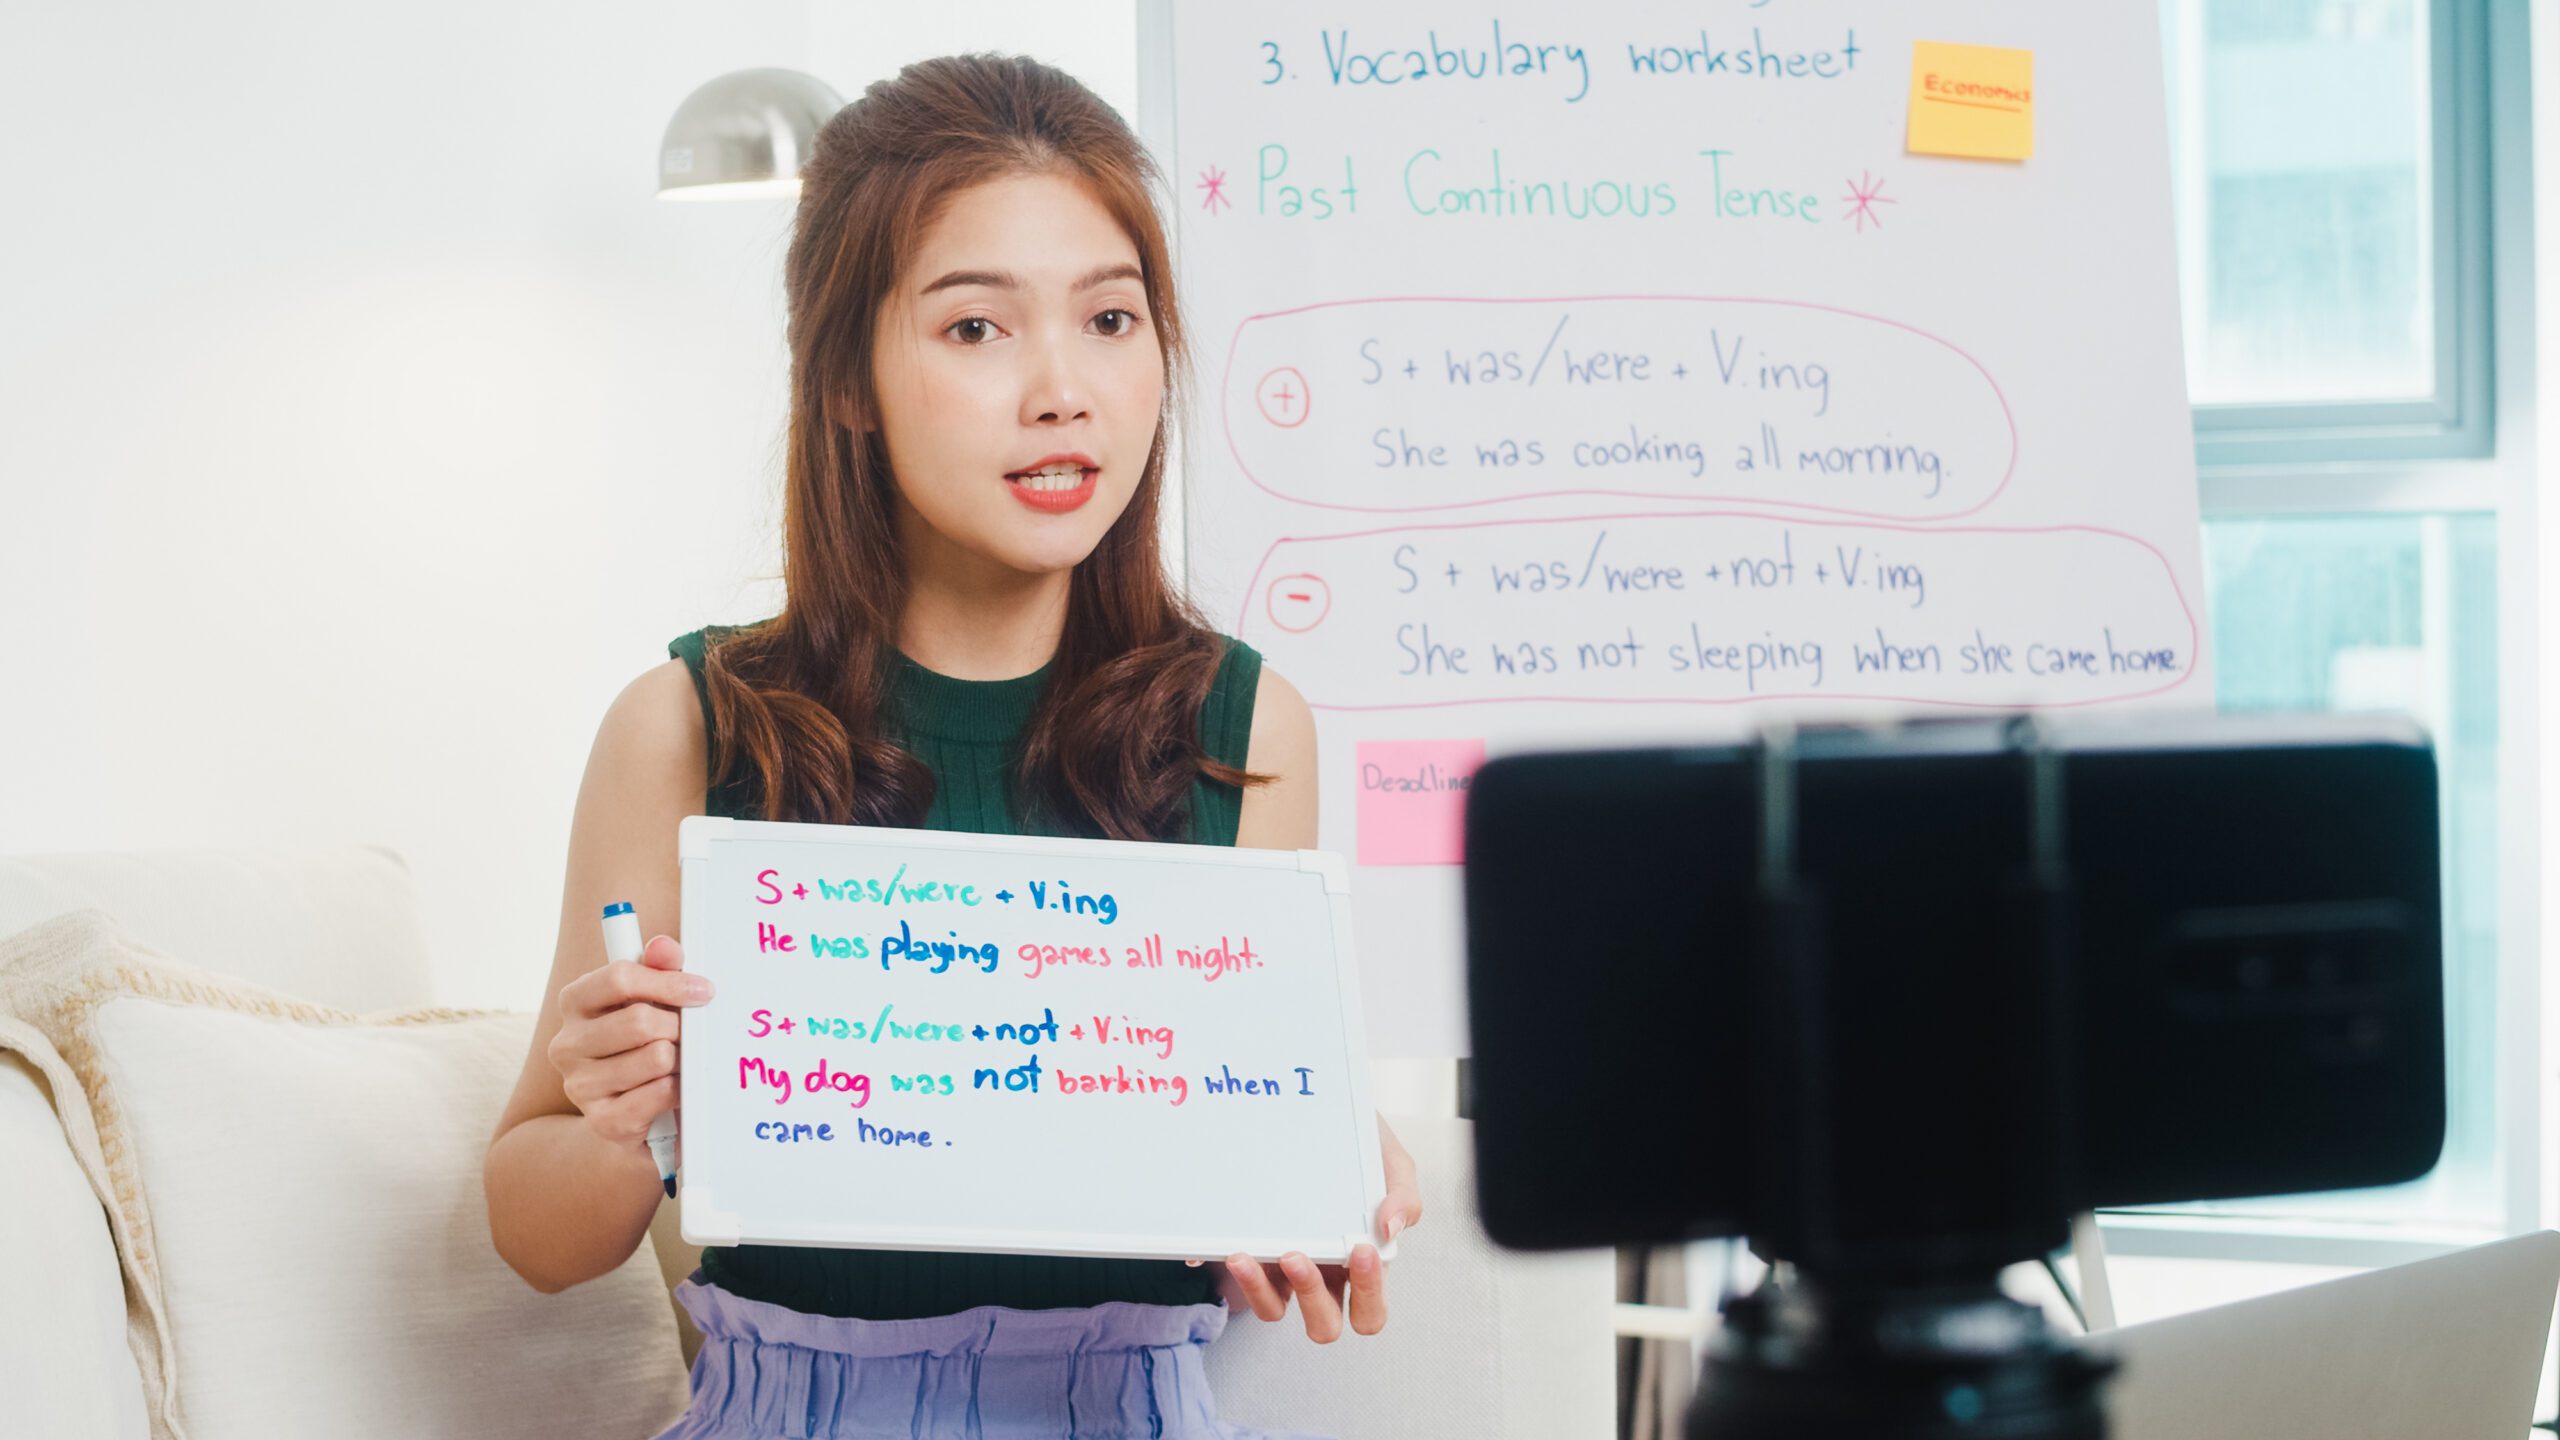 3. Vocabulary worksheet
Economics
* Past Continuous Tense *
+ S + was/were + V.ing
She was cooking all morning.
- S + was/were + not + V.ing
She was not sleeping when she came home.
Deadline
S + was/were + V.ing
He was playing games all night.
S + was/were + not + V.ing
My dog was not barking when I
came home.